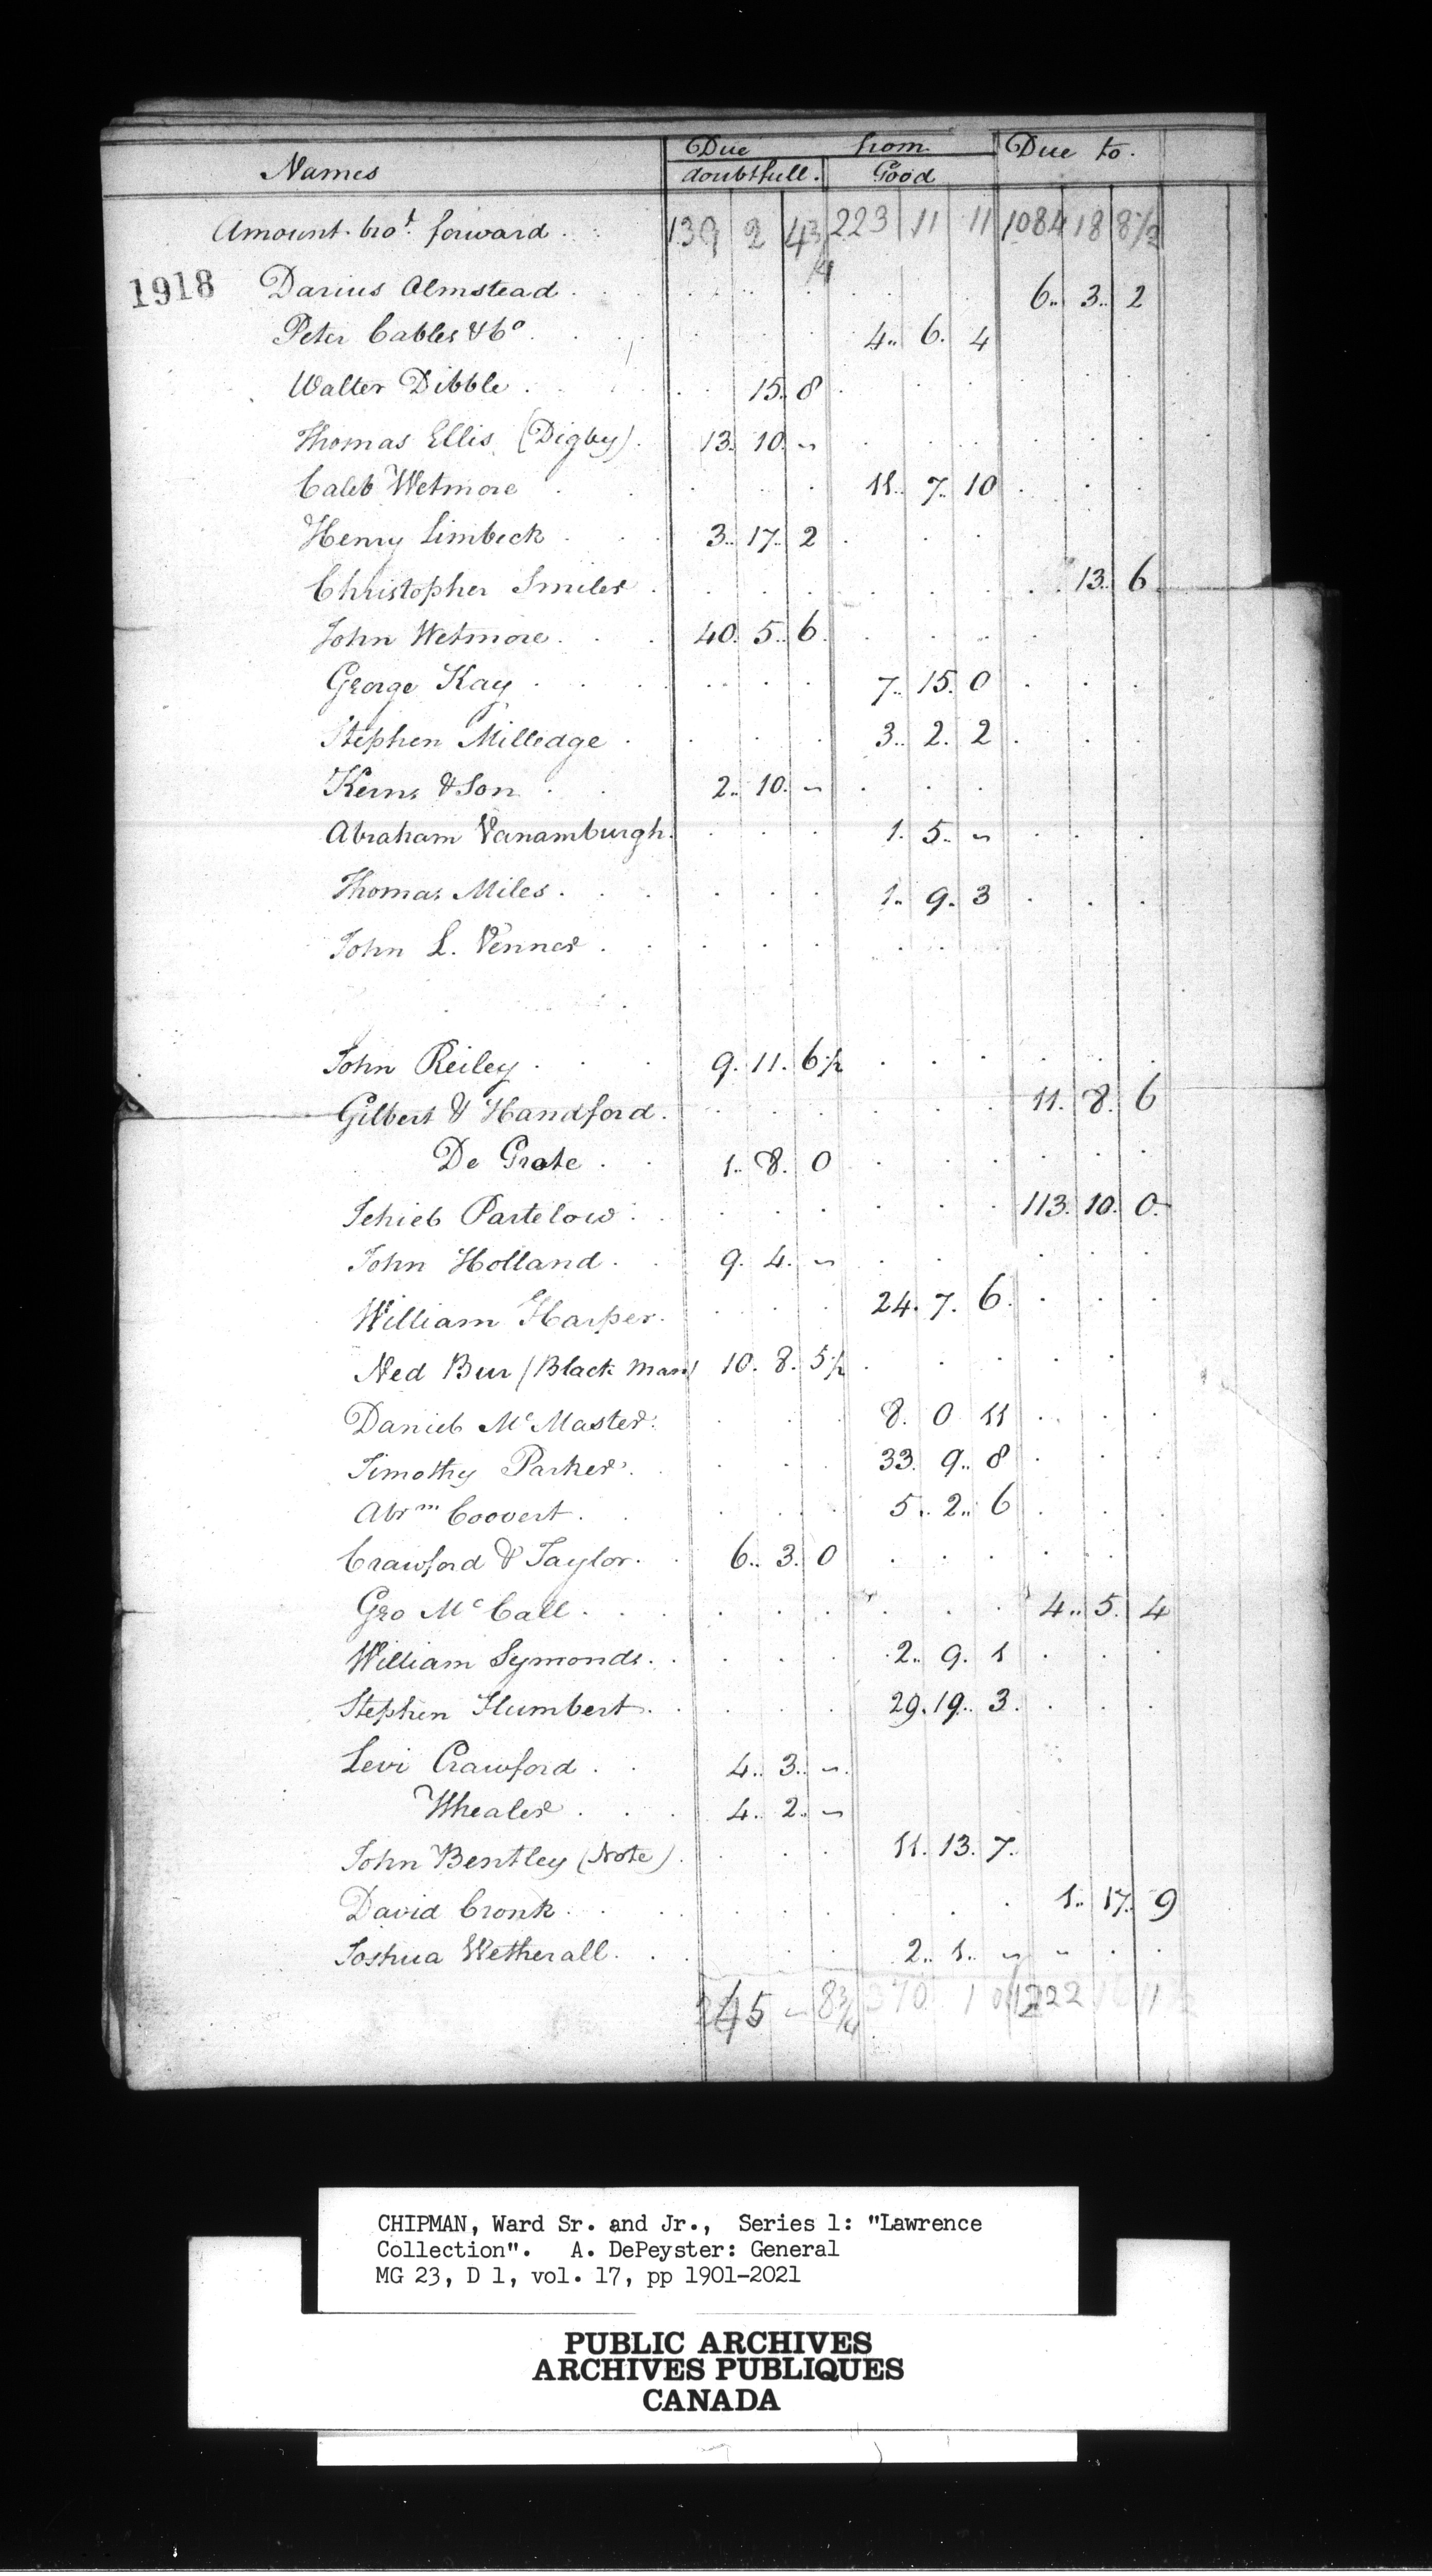 Names Due from Due to.
doubtfull. Good
Amount bro.t forward 139 2 4 3/4 223 11 11 1084 18 8 1/2
1918 Darius Olmstead 6.. 3.. 2
Peter Cables & Co 4.. 6. 4
Walter Dibble 15. 8
Thomas Ellis (Digby) 13. 10. ~
Caleb Wetmore 11. 7.. 10
Henry Limbeck 3.. 17.. 2
Christopher Smiler 13.. 6
John Wetmore 40. 5.. 6
George Kay 7.. 15. 0
Stephen Milledge 3.. 2. 2
Kerns & Son 2.. 10. ~
Abraham Vanamburgh. 1. 5.. ~
Thomas Miles 1.. 9. 3
John L. Venner
John Reiley 9. 11. 6 1/2
Gilbert & Handford. 11. 8. 6
De Grote 1.. 8. 0
Jehiel Partelow 113. 10. 0
John Holland 9. 4. ~
William Harper 24. 7. 6
Ned Bur (Black Man) 10. 8. 5 1/2
Daniel McMaster 8. 0 11
Timothy Parker 33. 9.. 8
Abrm Coovert 5.. 2.. 6
Crawford & Taylor 6.. 3. 0
Geo McCall 4.. 5. 4
William Symonds 2.. 9. 1
Stephen Humbert 29. 19.. 3
Levi Crawford 4.. 3.. ~
Whealer 4.. 2.. ~
John Bentley (Note) 11. 13. 7.
David Cronk 1.. 17.. 9
Joshua Wetherall 2.. 1.. ~
245 ~ 8 3/4 370 1 0 1222 11 1/2
CHIPMAN, Ward Sr. and Jr., Series 1: "Lawrence
Collection". A. DePeyster: General
MG 23, D 1, vol. 17, pp 1901-2021
PUBLIC ARCHIVES
ARCHIVES PUBLIQUES
CANADA